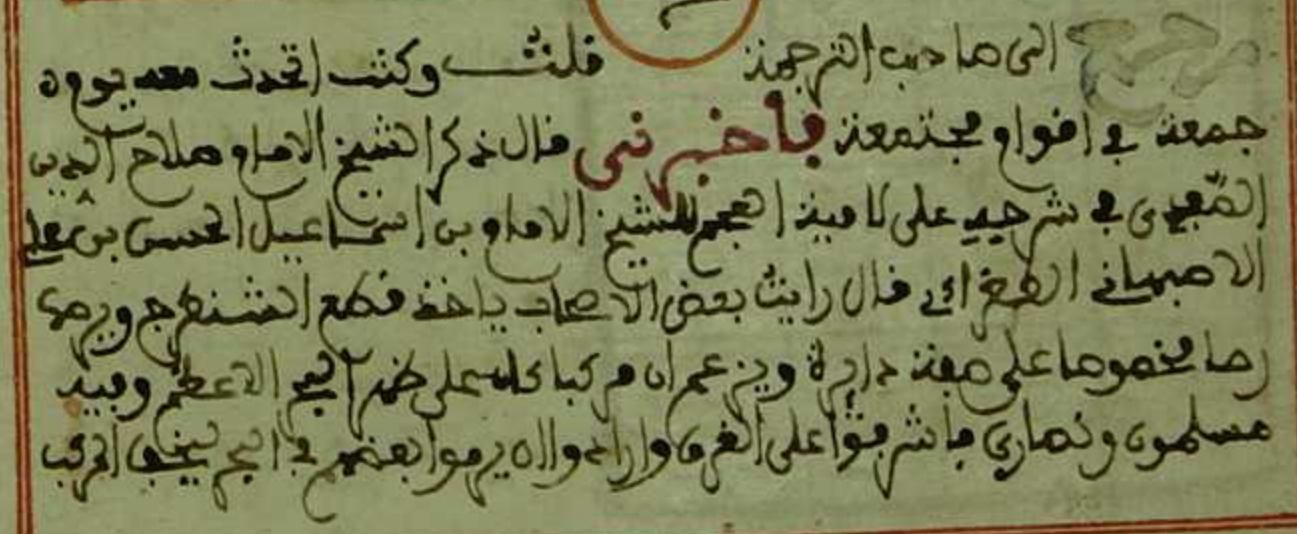 رجع الى صاحب الترجمة قلت وكنت اتحدث معه يوم
جمعة في اقوام مجتمعة فاخبرني قال ذكر الشيخ الامام صلاح الدين
الصفدي في شرحه على لامية العجم للشيخ الامام بن اسماعيل الحسين بن علي
الاصبهاني الطغرائي قال رايت بعض الاصحاب ياخذ قطع الشطرنج ويرصها
رصا مخصوصا على صفة دائرة ويزعم ان مركبا كان على ظهر البحر الاعظم وفيه
مسلمون ونصارى فاشرفوا على الغرق وارادوا ان يرموا بعضهم في البحر ليخف المركب